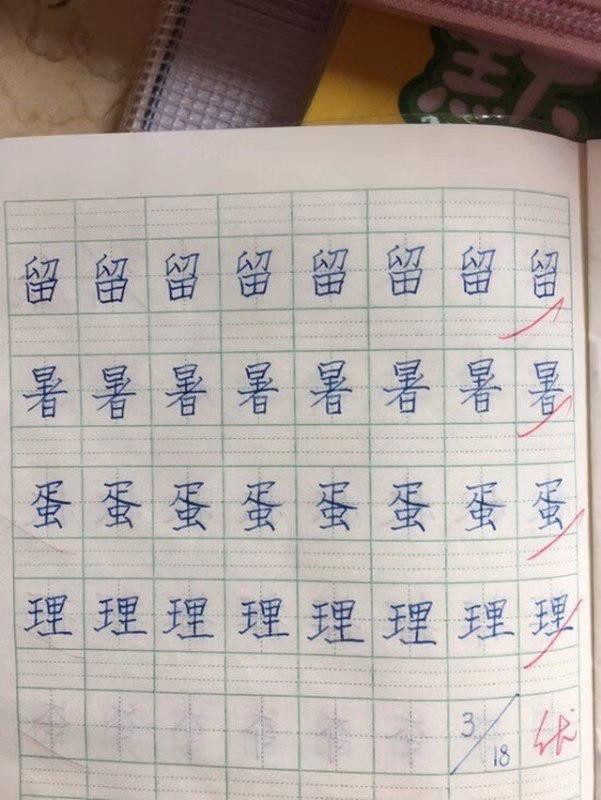 留留留留留留留留
暑暑暑暑暑暑暑暑
蛋蛋蛋蛋蛋蛋蛋蛋
理理理理理理理理
3/18 优